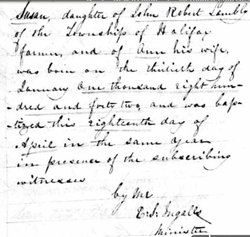 Susan, daughter of John Robert
of the Township of Halifax
farmer, and of Ann his wife,
was born on the thirtieth day of
January One thousand eight hun-
-dred and forty two and was bap-
-tized this eighteenth day of
April in the same year
in presence of the subscribing
witnesses
by me
Ingalls
Minister